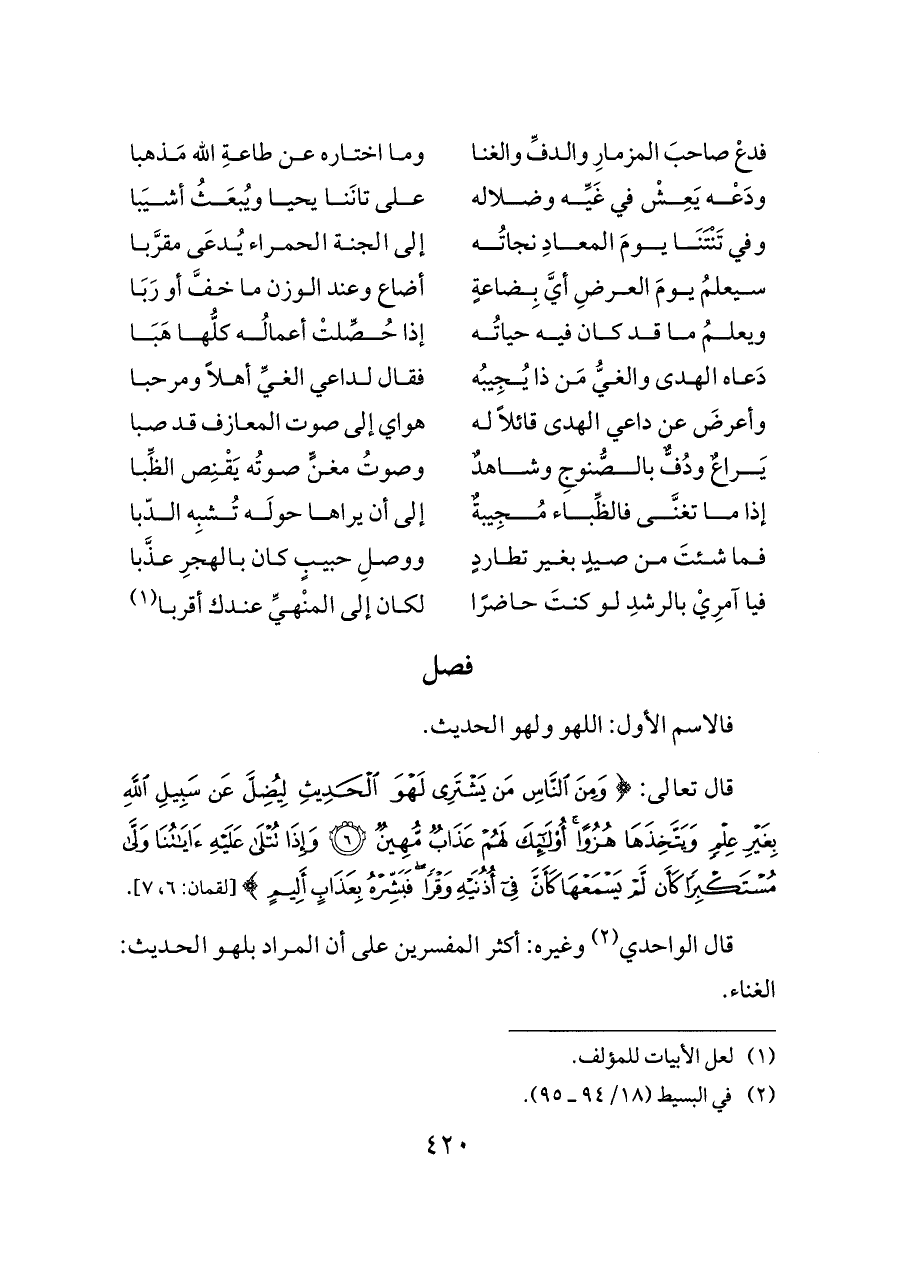 فدعْ صاحبَ المزمارِ والدفِّ والغنا وما اختاره عن طاعةِ الله مَذهبا
ودَعْه يَعِشْ في غَيِّه وضلاله على تاتَنا يحيا ويُبعَثُ أشيَبا
وفي تَنْتَنَا يومَ المعادِ نجاتُه إلى الجنة الحمراء يُدعَى مقرَّبا
سيعلمُ يومَ العرضِ أيَّ بِضاعةٍ أضاع وعند الوزن ما خفَّ أو رَبَا
ويعلمُ ما قد كان فيه حياتُه إذا حُصِّلتْ أعمالُه كلُّها هَبَا
دَعاه الهدى والغيُّ مَن ذا يُجِيبُه فقال لداعي الغيِّ أهلاً ومرحبا
وأعرضَ عن داعي الهدى قائلاً له هواي إلى صوت المعازف قد صبا
يَراعٌ ودُفٌّ بالصُّنوجِ وشاهدٌ وصوتُ مغنٍّ صوتُه يَقْنِص الظِّبا
إذا ما تغنَّى فالظِّباء مُجِيبةٌ إلى أن يراها حولَه تُشبِه الدّبا
فما شئتَ من صيدٍ بغير تطاردٍ ووصلِ حبيبٍ كان بالهجرِ عذَّبا
فيا آمرِيْ بالرشدِ لو كنتَ حاضرًا لكان إلى المنْهيِّ عندك أقربا(١)
فصل
فالاسم الأول: اللهو ولهو الحديث.
قال تعالى: ﴿ وَمِنَ ٱلنَّاسِ مَن يَشْتَرِى لَهْوَ ٱلْحَدِيثِ لِيُضِلَّ عَن سَبِيلِ ٱللَّهِ
بِغَيْرِ عِلْمٍ وَيَتَّخِذَهَا هُزُوًا ۚ أُوْلَٰٓئِكَ لَهُمْ عَذَابٌ مُّهِينٌ ۝٦ وَإِذَا تُتْلَىٰ عَلَيْهِ ءَايَٰتُنَا وَلَّىٰ
مُسْتَكْبِرًا كَأَن لَّمْ يَسْمَعْهَا كَأَنَّ فِىٓ أُذُنَيْهِ وَقْرًا ۖ فَبَشِّرْهُ بِعَذَابٍ أَلِيمٍ ﴾ [لقمان: ٦، ٧].
قال الواحدي(٢) وغيره: أكثر المفسرين على أن المراد بلهو الحديث:
الغناء.
(١) لعل الأبيات للمؤلف.
(٢) في البسيط (١٨/ ٩٤ ـ ٩٥).
٤٢٠